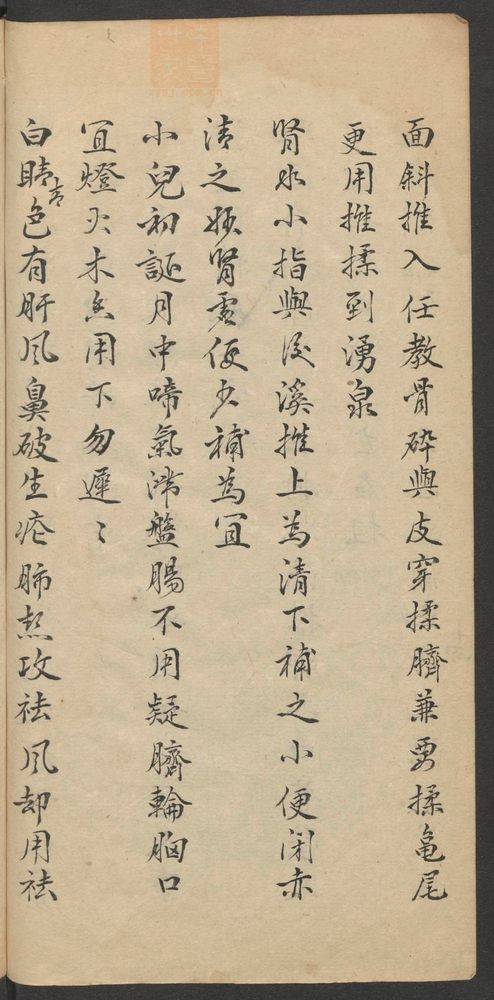 面斜推入任教骨碎與皮穿揉臍兼要揉龜尾
更用推揉到湧泉
腎水小指與後溪推上為清下補之小便闭赤
清之妙腎虛便少補為宜
小兒初誕月中啼氣滯盤腸不用疑臍輪胸口
宜燈火未急用下勿遲〻
白睛青色有肝风鼻破生疮肺热攻祛风却用祛